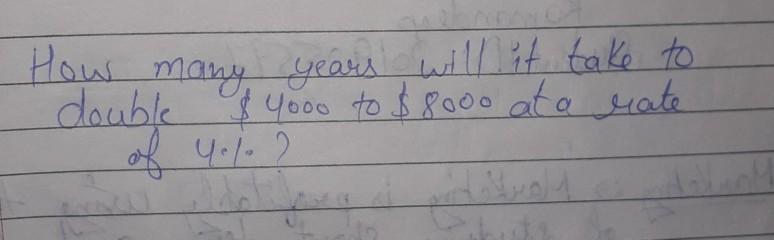 How many years will it take to
double $4000 to $8000 at a rate
of 4%?